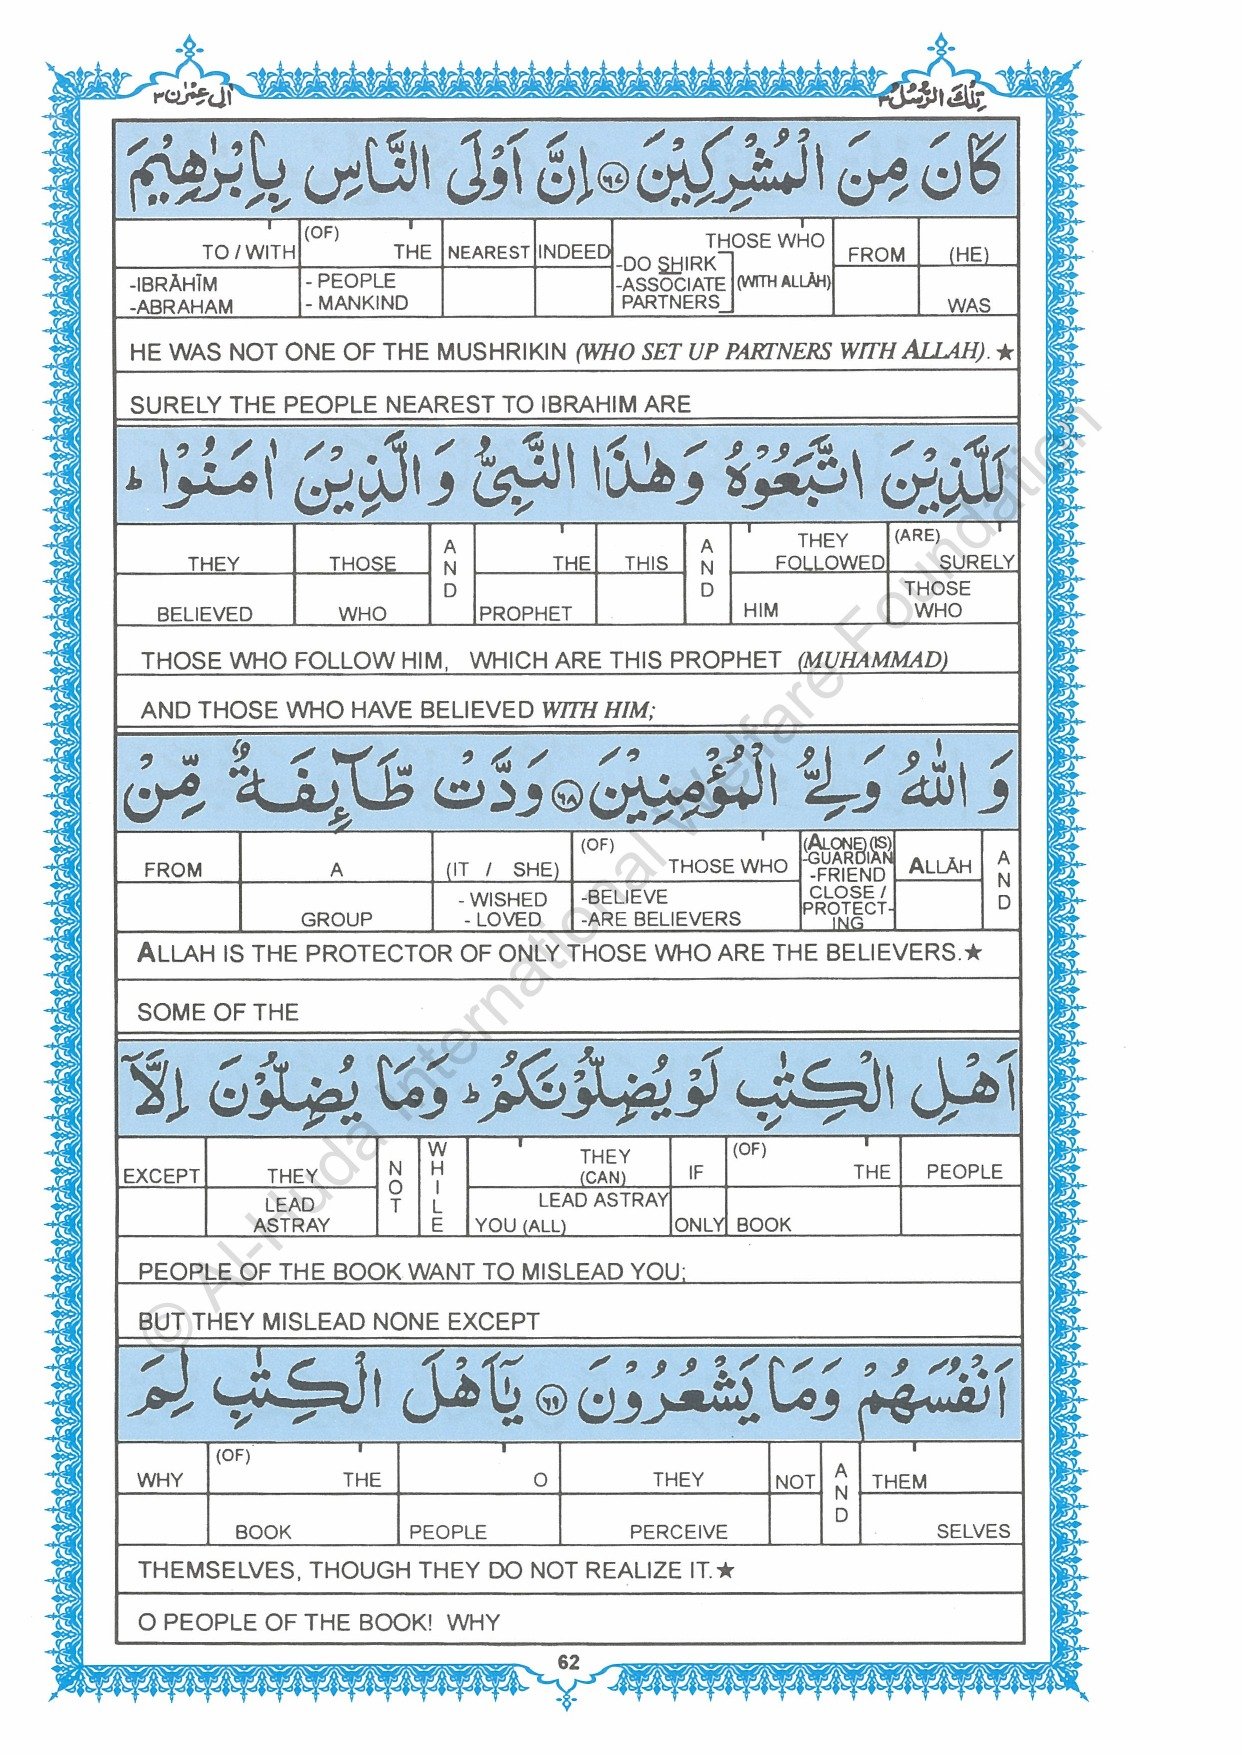 اٰلِ عِمْرٰن ٣
تِلْكَ الرُّسُلُ ٣
كَانَ مِنَ الْمُشْرِكِيْنَ ۝٦٧ اِنَّ اَوْلَى النَّاسِ بِاِبْرٰهِيْمَ
TO / WITH (OF) THE NEAREST INDEED THOSE WHO FROM (HE)
-IBRĀHĪM - PEOPLE -DO SHIRK (WITH ALLĀH) WAS
-ABRAHAM - MANKIND -ASSOCIATE PARTNERS
HE WAS NOT ONE OF THE MUSHRIKIN (WHO SET UP PARTNERS WITH ALLAH). ★
SURELY THE PEOPLE NEAREST TO IBRAHIM ARE
لَلَّذِيْنَ اتَّبَعُوْهُ وَهٰذَا النَّبِىُّ وَالَّذِيْنَ اٰمَنُوْا ؕ
THEY THOSE AND THE THIS AND THEY FOLLOWED (ARE) SURELY
BELIEVED WHO PROPHET HIM THOSE WHO
THOSE WHO FOLLOW HIM, WHICH ARE THIS PROPHET (MUHAMMAD)
AND THOSE WHO HAVE BELIEVED WITH HIM;
وَ اللّٰهُ وَلِىُّ الْمُؤْمِنِيْنَ ۝٦٨ وَدَّتْ طَّآئِفَةٌ مِّنْ
FROM A (IT / SHE) (OF) THOSE WHO (ALONE) (IS) -GUARDIAN -FRIEND CLOSE / PROTECT-ING ALLĀH AND
GROUP - WISHED - LOVED -BELIEVE -ARE BELIEVERS
ALLAH IS THE PROTECTOR OF ONLY THOSE WHO ARE THE BELIEVERS.★
SOME OF THE
اَهْلِ الْكِتٰبِ لَوْ يُضِلُّوْنَكُمْ ؕ وَمَا يُضِلُّوْنَ اِلَّاۤ
EXCEPT THEY NOT WHILE THEY (CAN) IF (OF) THE PEOPLE
LEAD ASTRAY LEAD ASTRAY YOU (ALL) ONLY BOOK
PEOPLE OF THE BOOK WANT TO MISLEAD YOU;
BUT THEY MISLEAD NONE EXCEPT
اَنْفُسَهُمْ وَمَا يَشْعُرُوْنَ ۝٦٩ يٰۤاَهْلَ الْكِتٰبِ لِمَ
WHY (OF) THE O THEY NOT AND THEM
BOOK PEOPLE PERCEIVE SELVES
THEMSELVES, THOUGH THEY DO NOT REALIZE IT.★
O PEOPLE OF THE BOOK! WHY
62
© Al-Huda International Welfare Foundation